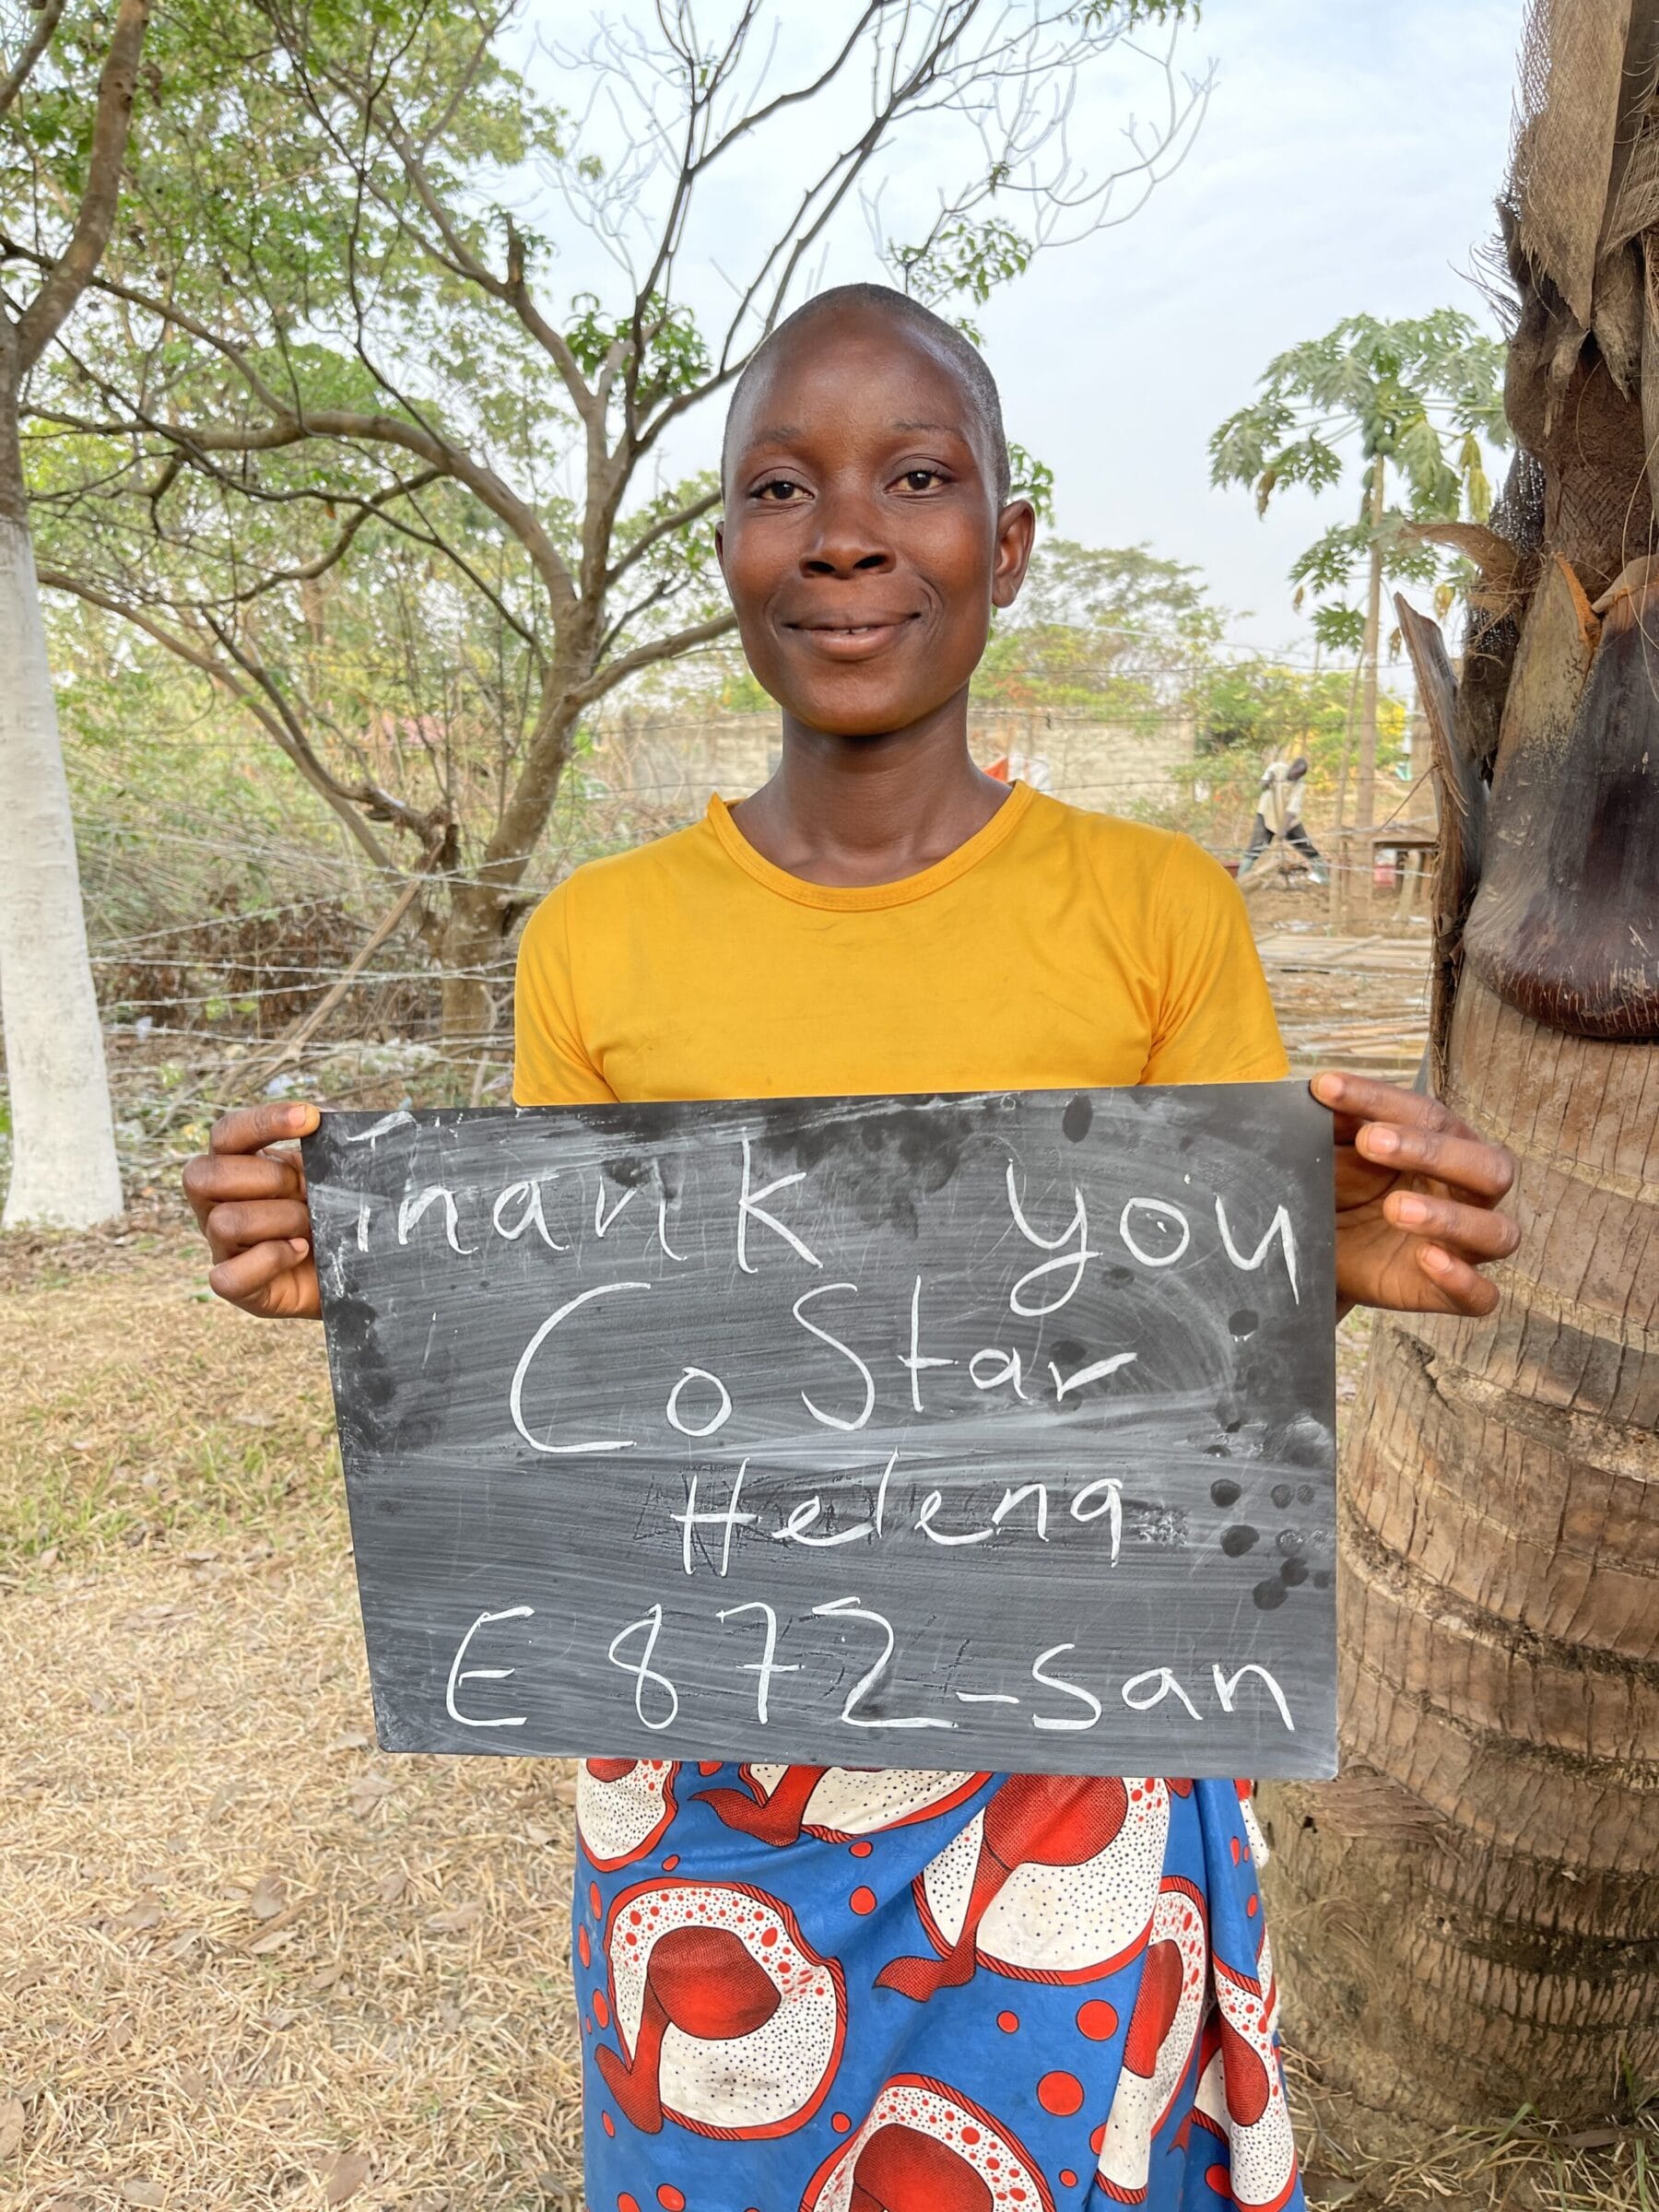 Thank you
CoStar
Helena
E872-san